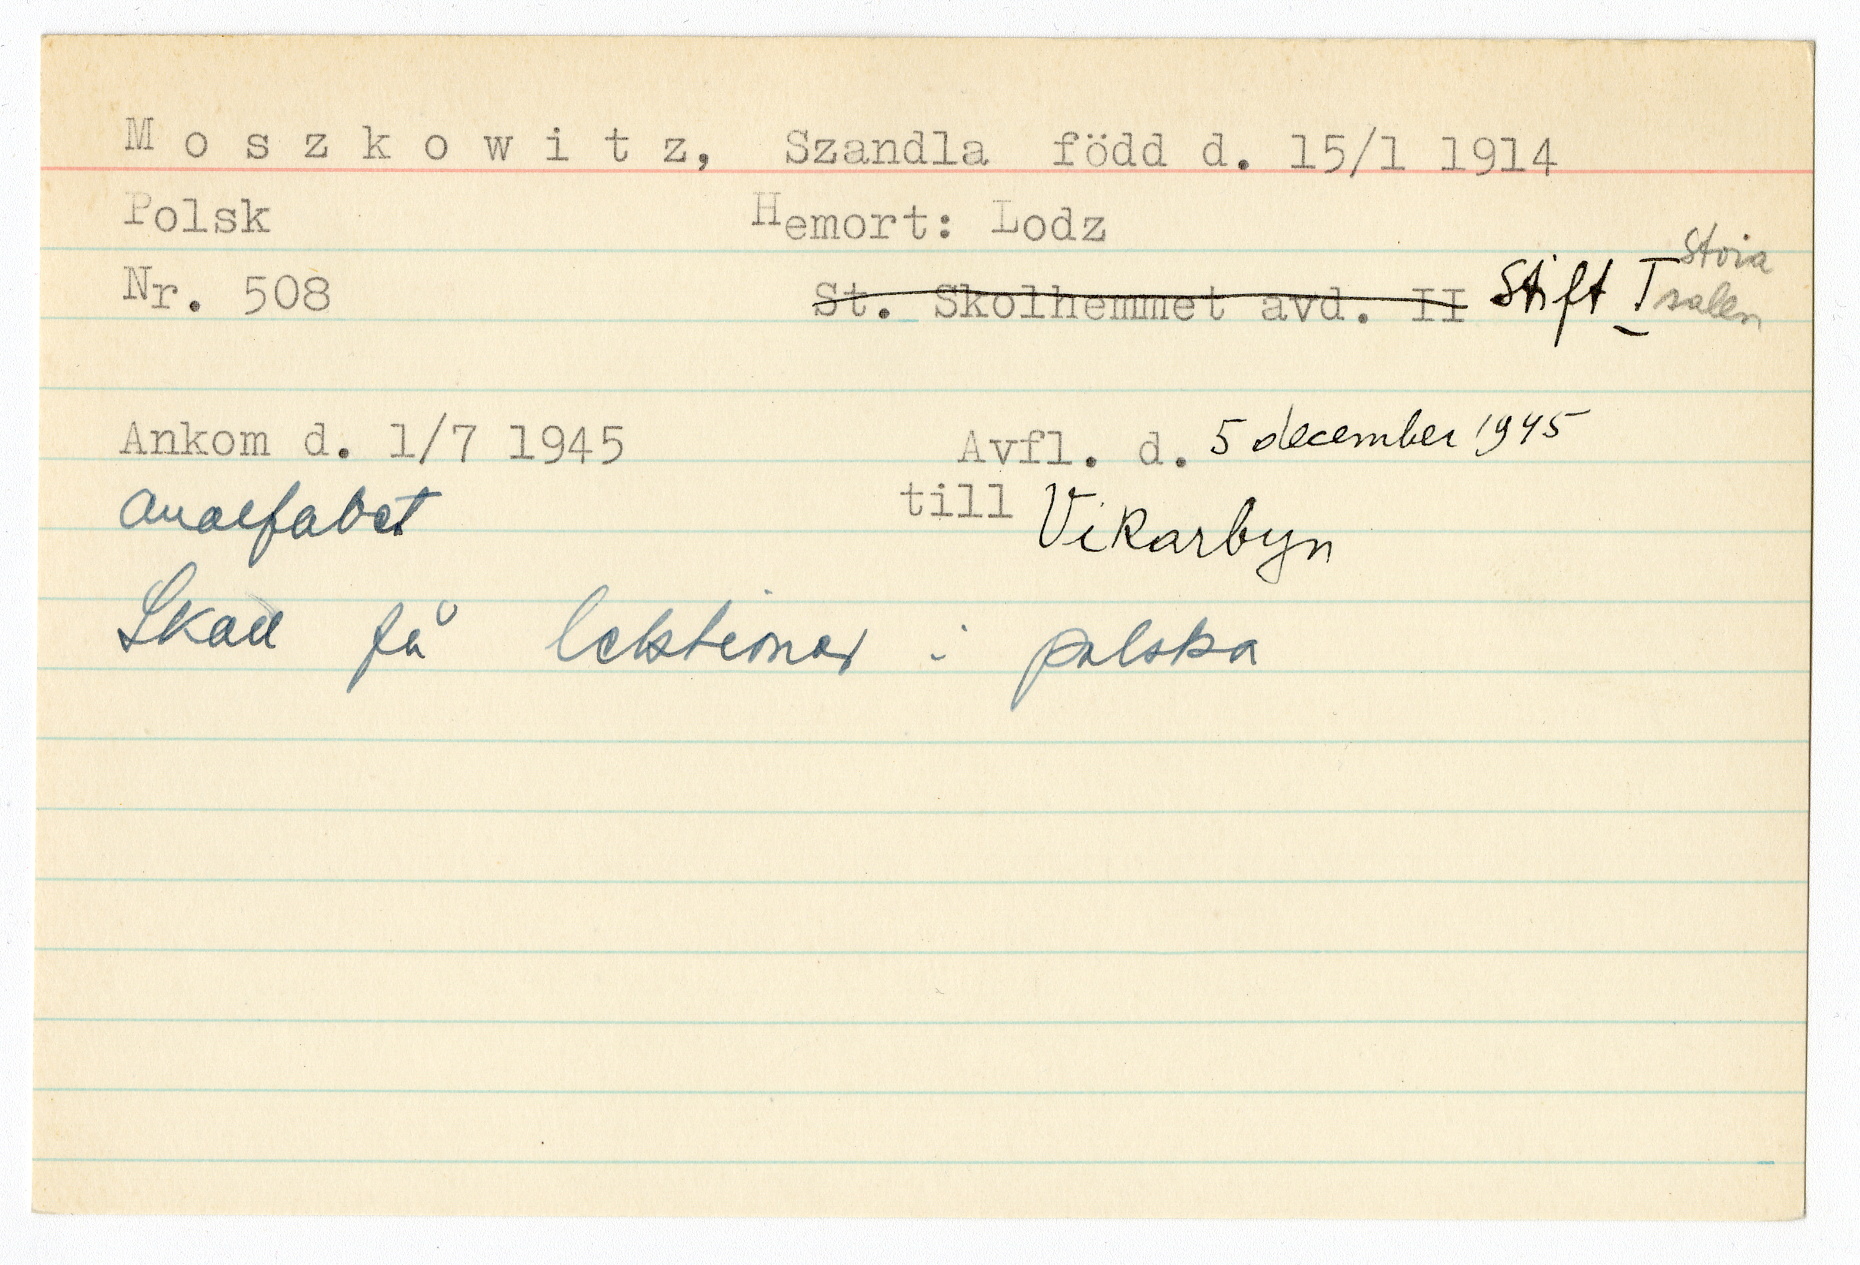 M o s z k o w i t z, Szandla född d. 15/1 1914
Polsk Hemort: Lodz
Nr. 508 St. Skolhemmet avd. II Stift I Stora salen
Ankom d. 1/7 1945 Avfl. d. 5 december 1945
analfabet till Vikarbyn
Skall få lektioner i polska